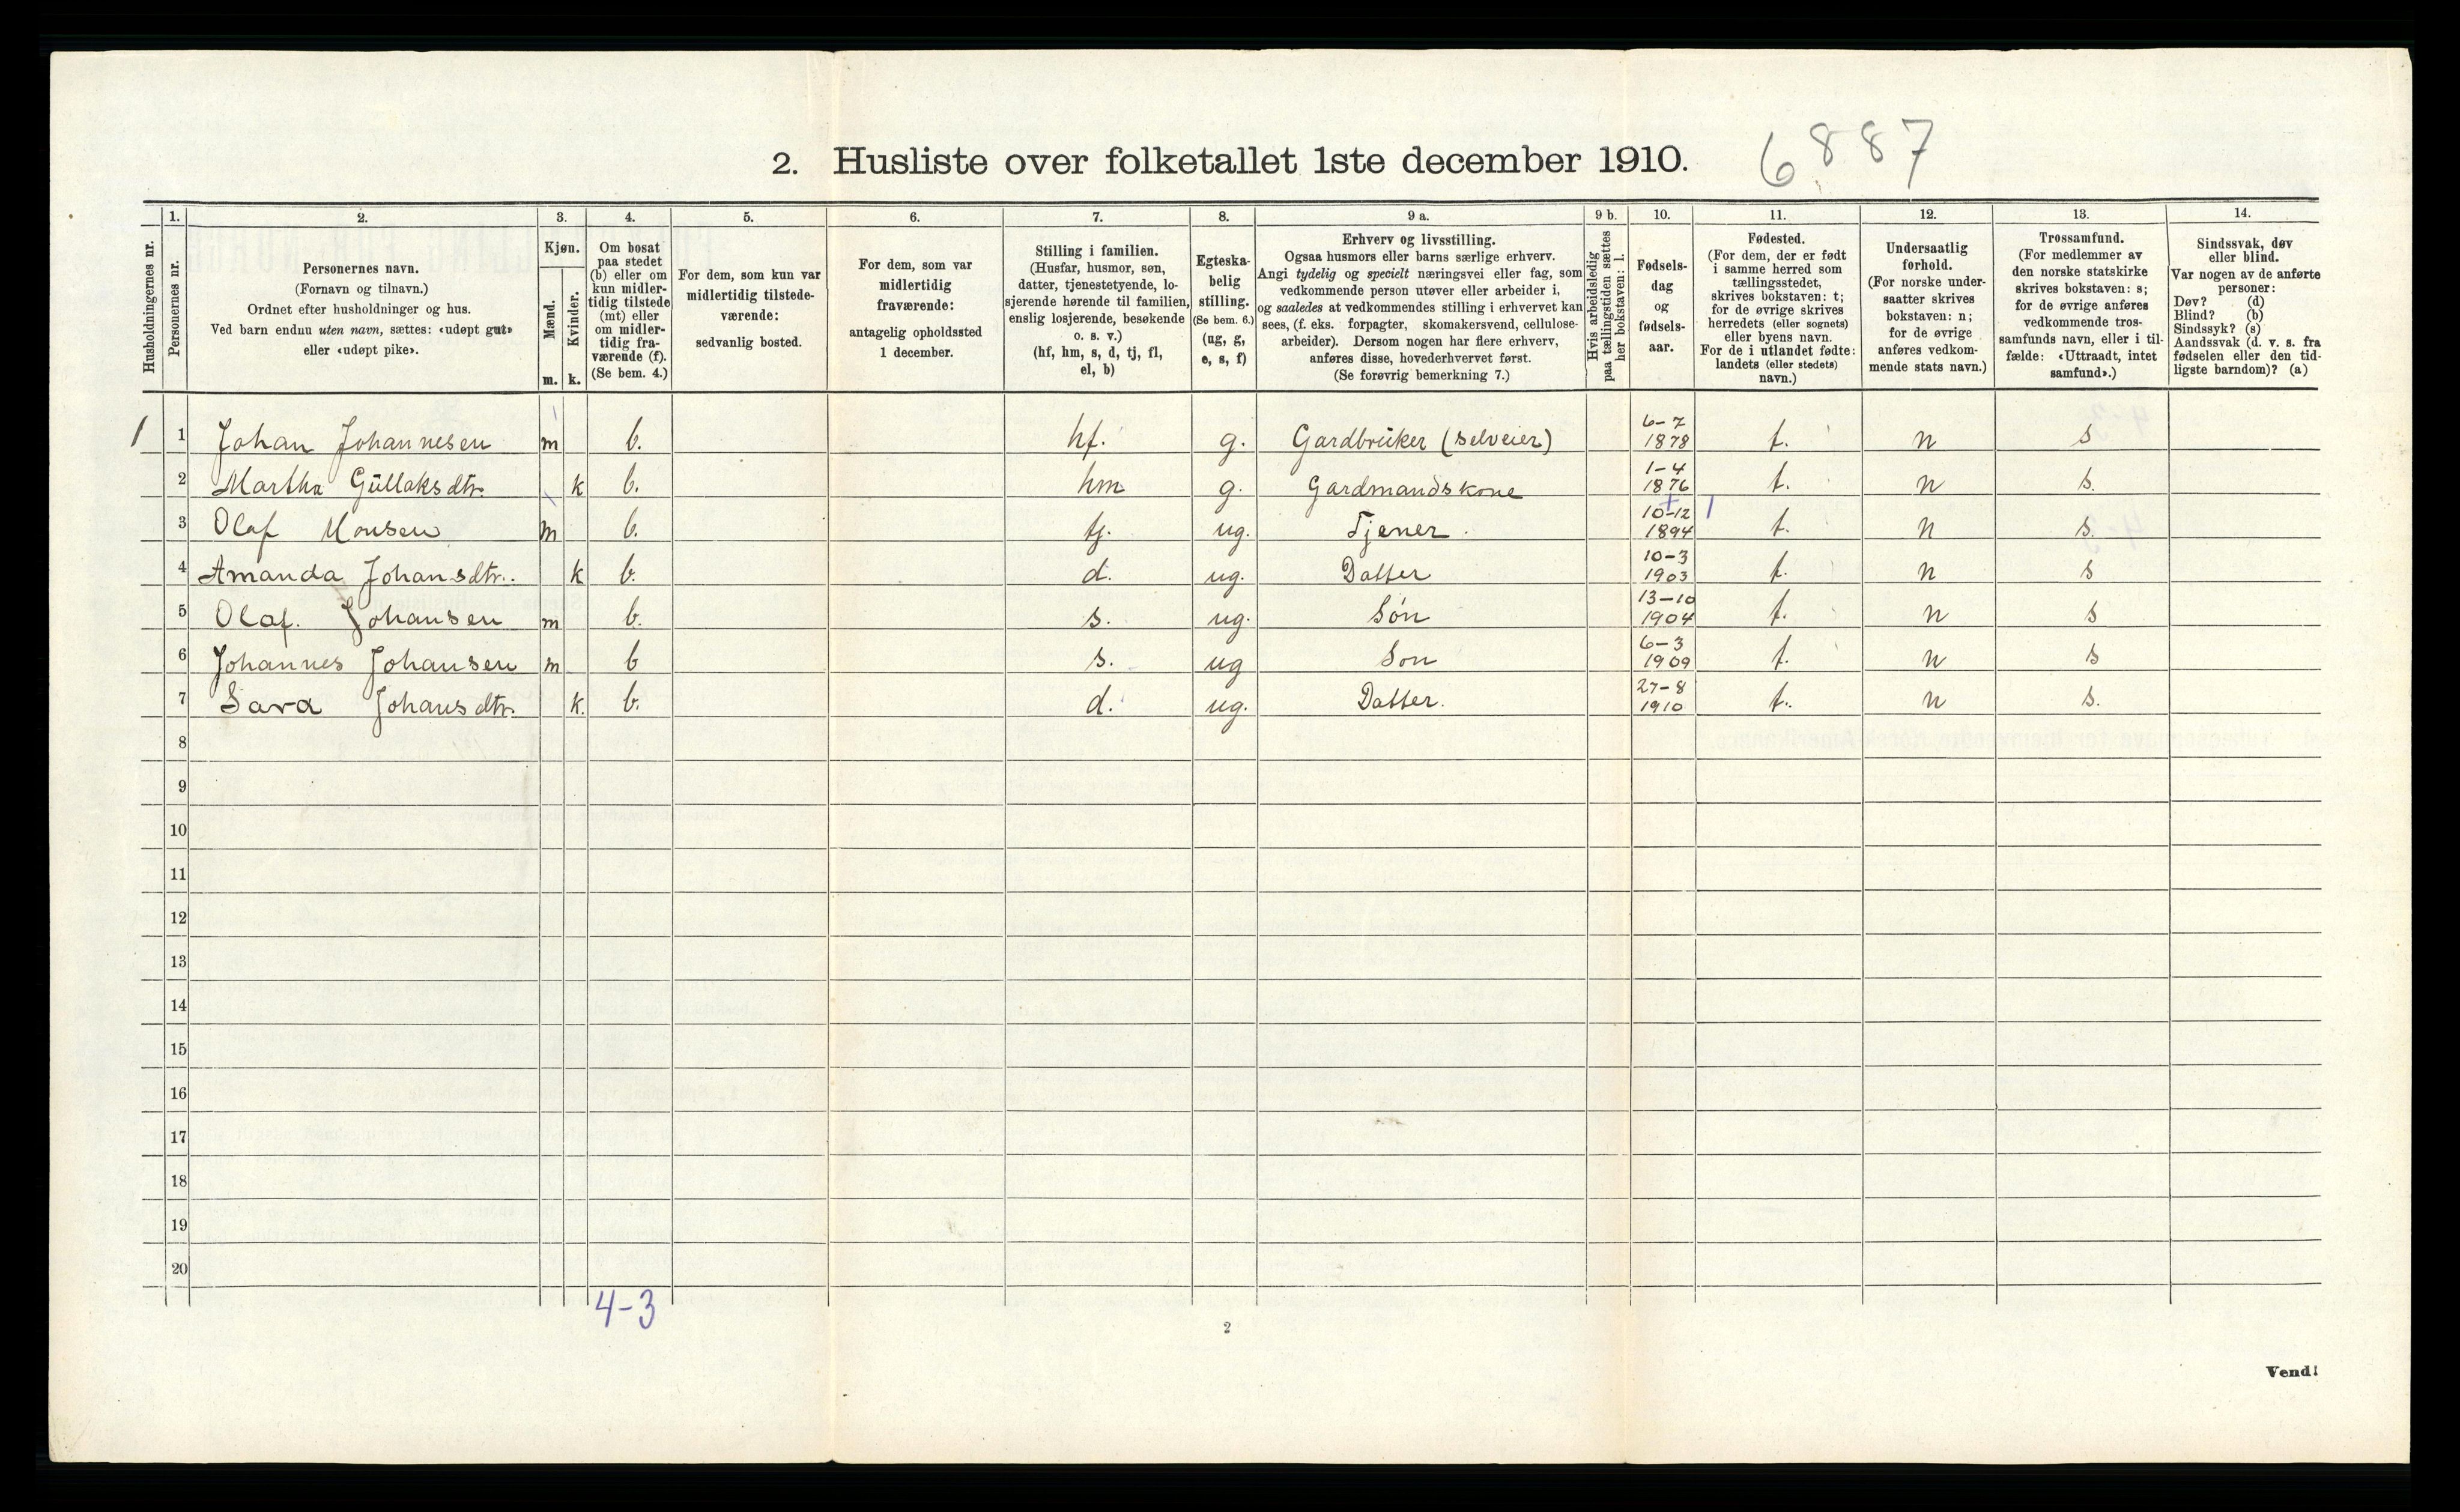 2. Husliste over folketallet 1ste december 1910. 6887
Husholdningernes nr.
1.
Personernes nr.
2.
Personernes navn.
(Fornavn og tilnavn.)
Ordnet efter husholdninger og hus.
Ved barn endnu uten navn, sættes: «udøpt gut»
eller «udøpt pike».
3.
Kjøn.
Mænd.
Kvinder.
m. k.
4.
Om bosat
paa stedet
(b) eller om
kun midler-
tidig tilstede
(mt) eller
om midler-
tidig fra-
værende (f).
(Se bem. 4.)
5.
For dem, som kun var
midlertidig tilstede-
værende:
sedvanlig bosted.
6.
For dem, som var
midlertidig
fraværende:
antagelig opholdssted
1 december.
7.
Stilling i familien.
(Husfar, husmor, søn,
datter, tjenestetyende, lo-
sjerende hørende til familien,
enslig losjerende, besøkende
o. s. v.)
(hf, hm, s, d, tj, fl,
el, b)
8.
Egteska-
belig
stilling.
(Se bem. 6.)
(ug, g,
e, s, f)
9 a.
Erhverv og livsstilling.
Ogsaa husmors eller barns særlige erhverv.
Angi tydelig og specielt næringsvei eller fag, som
vedkommende person utøver eller arbeider i,
og saaledes at vedkommendes stilling i erhvervet kan
sees, (f. eks. forpagter, skomakersvend, cellulose-
arbeider). Dersom nogen har flere erhverv,
anføres disse, hovederhvervet først.
(Se forøvrig bemerkning 7.)
9 b.
Hvis arbeidsledig
paa tællingstiden sættes
her bokstaven: l.
10.
Fødsels-
dag
og
fødsels-
aar.
11.
Fødested.
(For dem, der er født
i samme herred som
tællingsstedet,
skrives bokstaven: t;
for de øvrige skrives
herredets (eller sognets)
eller byens navn.
For de i utlandet fødte:
landets (eller stedets)
navn.)
12.
Undersaatlig
forhold.
(For norske under-
saatter skrives
bokstaven: n;
for de øvrige
anføres vedkom-
mende stats navn.)
13.
Trossamfund.
(For medlemmer av
den norske statskirke
skrives bokstaven: s;
for de øvrige anføres
vedkommende tros-
samfunds navn, eller i til-
fælde: «Uttraadt, intet
samfund».)
14.
Sindssvak, døv
eller blind.
Var nogen av de anførte
personer:
Døv? (d)
Blind? (b)
Sindssyk? (s)
Aandssvak (d. v. s. fra
fødselen eller den tid-
ligste barndom)? (a)
1 1 Johan Johannesen m b. hf. g. Gardbrüker (selveier) 6-7 1878 t. n s
2 Martha Güllaksdtr. k b. hm g. Gardmandskone 1-4 1876 t. n s.
3 Olaf Monsen m b. tj. ug. Tjener. 10-12 1894 t. n s.
4 Amanda Johansdtr. k b. d. ug. Datter 10-3 1903 t. n s
5 Olaf. Johansen m b. s. ug. Són 13-10 1904 t. n s
6 Johannes Johansen m b s. ug Son 6-3 1909 t. n s
7 Sara Johansdtr. k. b. d. ug. Datter. 27-8 1910 t. n s.
8
9
10
11
12
13
14
15
16
17
18
19
20
4-3
2
Vend!